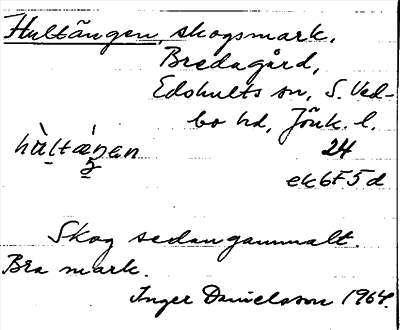 Hultängen, skogsmark,
Bredagård,
Edshults sn, S. Ved-
bo hd, Jönk. l.
hùltæ̀ŋen 24
5
ek 6F5d
Skog sedan gammalt.
Bra mark.
Inger Danielsson 1964.